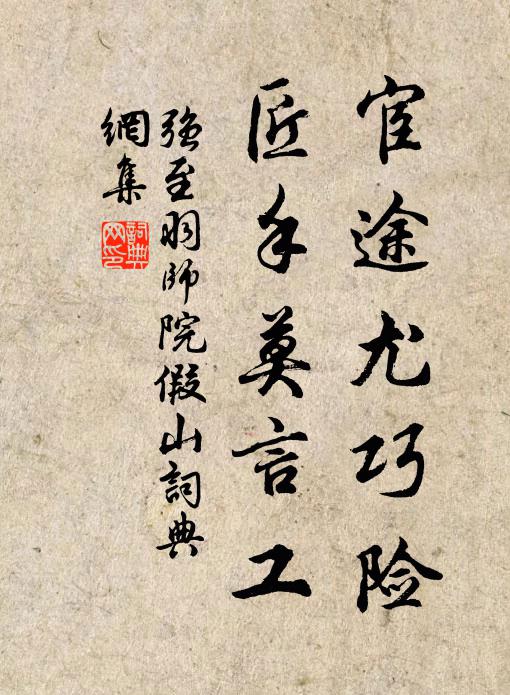 宦途尤巧险
匠手莫言工
强至羽師院假山詞典
網集
詞典
网印